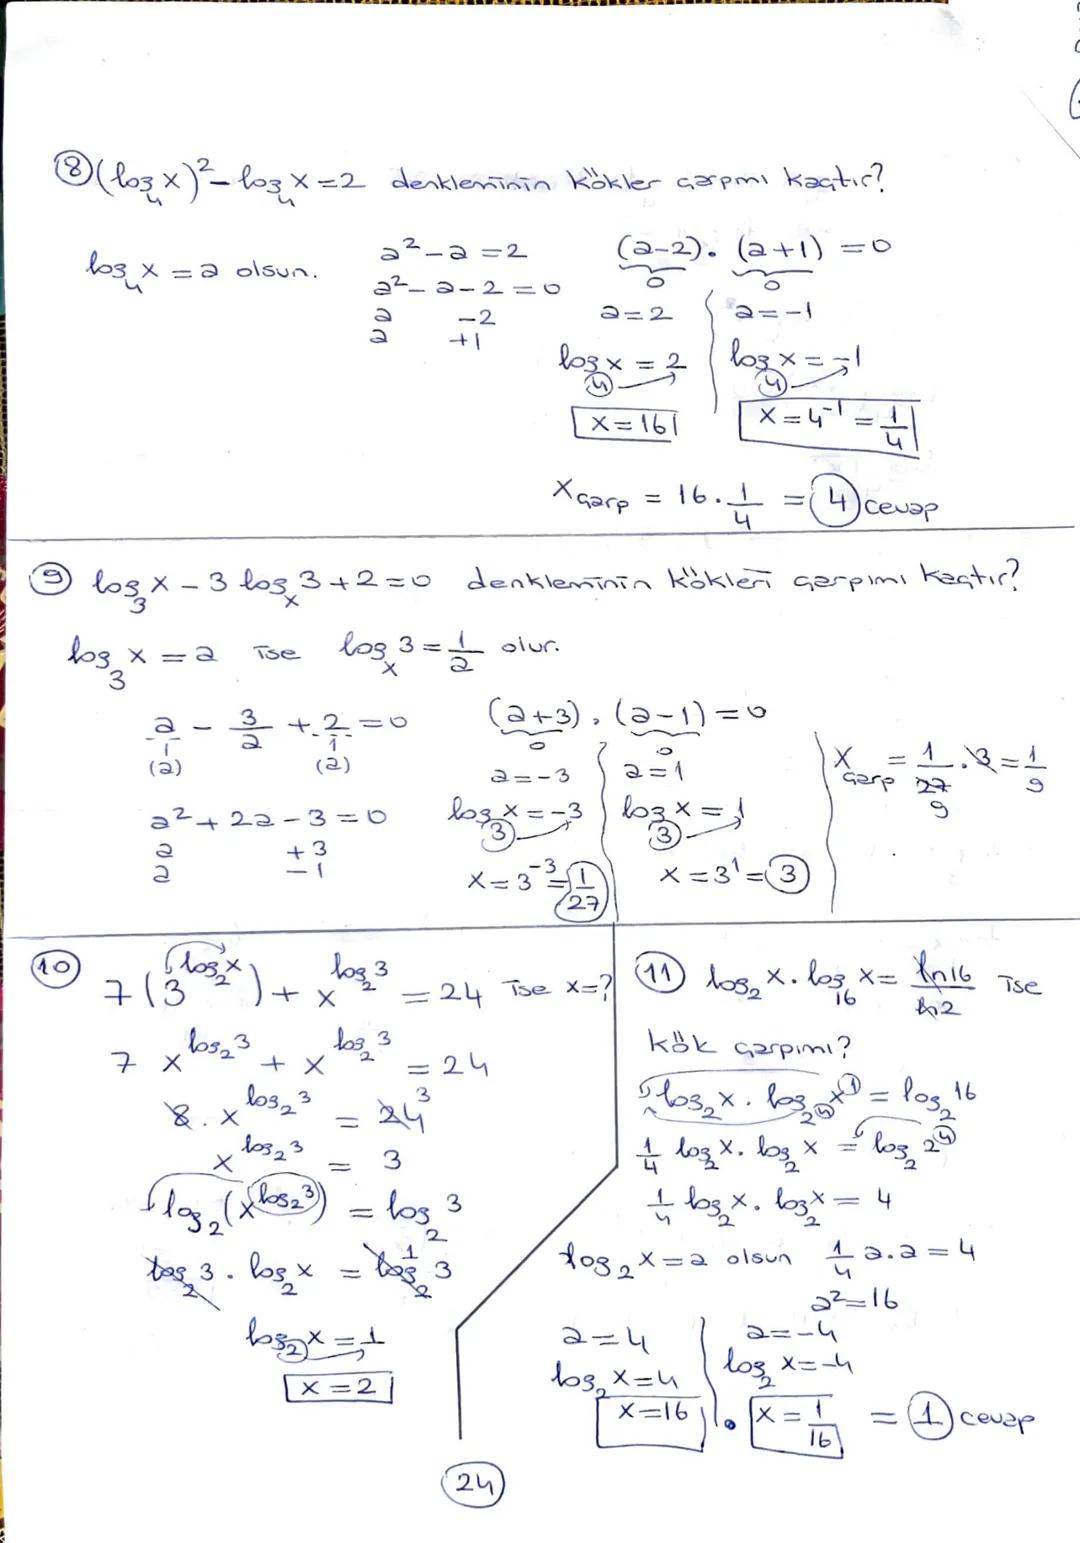 ⑧ (log₄x)² - log₄x = 2 denkleminin kökler çarpımı kaçtır?
log₄x = a olsun.
a² - a = 2
a² - a - 2 = 0
a -2
a +1
(a-2). (a+1) = 0
0 0
a = 2 a = -1
log₄x = 2 log₄x = -1
x = 16 x = 4⁻¹ = 1/4
x çarp = 16 . 1/4 = 4 cevap
⑨ log₃x - 3 logₓ3 + 2 = 0 denkleminin kökleri çarpımı kaçtır?
log₃x = a ise logₓ3 = 1/a olur.
a/1 - 3/a + 2/1 = 0
(a) (a)
a² + 2a - 3 = 0
a +3
a -1
(a+3) . (a-1) = 0
0 0
a = -3 a = 1
log₃x = -3 log₃x = 1
x = 3⁻³ = 1/27 x = 3¹ = 3
x çarp = 1/27 . 3 = 1/9
9
⑩ 7(3^(log₂x)) + x^(log₂3) = 24 ise x=?
7 x^(log₂3) + x^(log₂3) = 24
8 . x^(log₂3) = 24 3
x^(log₂3) = 3
log₂(x^(log₂3)) = log₂3
log₂3 . log₂x = log₂3 1
log₂x = 1
x = 2
⑪ log₂x . log₁₆x = ln16/ln2 ise
kök çarpımı?
log₂x . log₂⁴x¹ = log₂16
1/4 log₂x . log₂x = log₂2⁴
1/4 log₂x . log₂x = 4
log₂x = a olsun 1/4 a.a = 4
a² = 16
a = 4 a = -4
log₂x = 4 log₂x = -4
x = 16 . x = 1/16 = 1 cevap
24